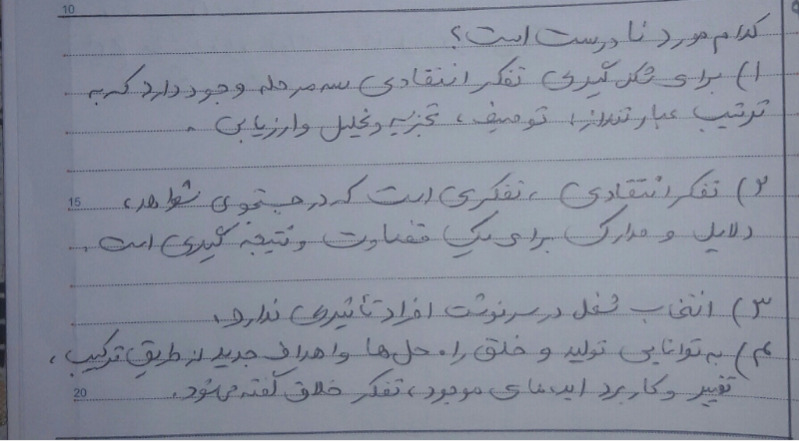 10
کدام مورد نادرست است؟
۱) برای شکل گیری تفکر انتقادی سه مرحله وجود دارد که به
ترتیب عبارتنداز: توصیف، تجزیه و تحلیل و ارزیابی.
۲) تفکر انتقادی، تفکری است که در جستجوی شواهد،
15
دلایل و مدارک برای یک قضاوت و نتیجه گیری است.
۳) انتخاب شغل در سرنوشت افراد تأثیری ندارد.
۴) به توانایی تولید و خلق راه حل ها و اهداف جدید از طریق ترکیب،
تغییر و کاربرد ایده های موجود، تفکر خلاق گفته می شود.
20